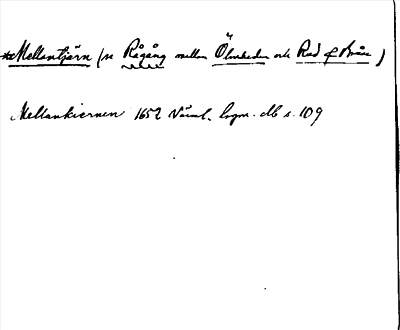 *Mellantjärn (n Rågång mellan Ölmheden och Rud f Bråe)
Mellankiernen 1652 Värml. lagm. db s. 109